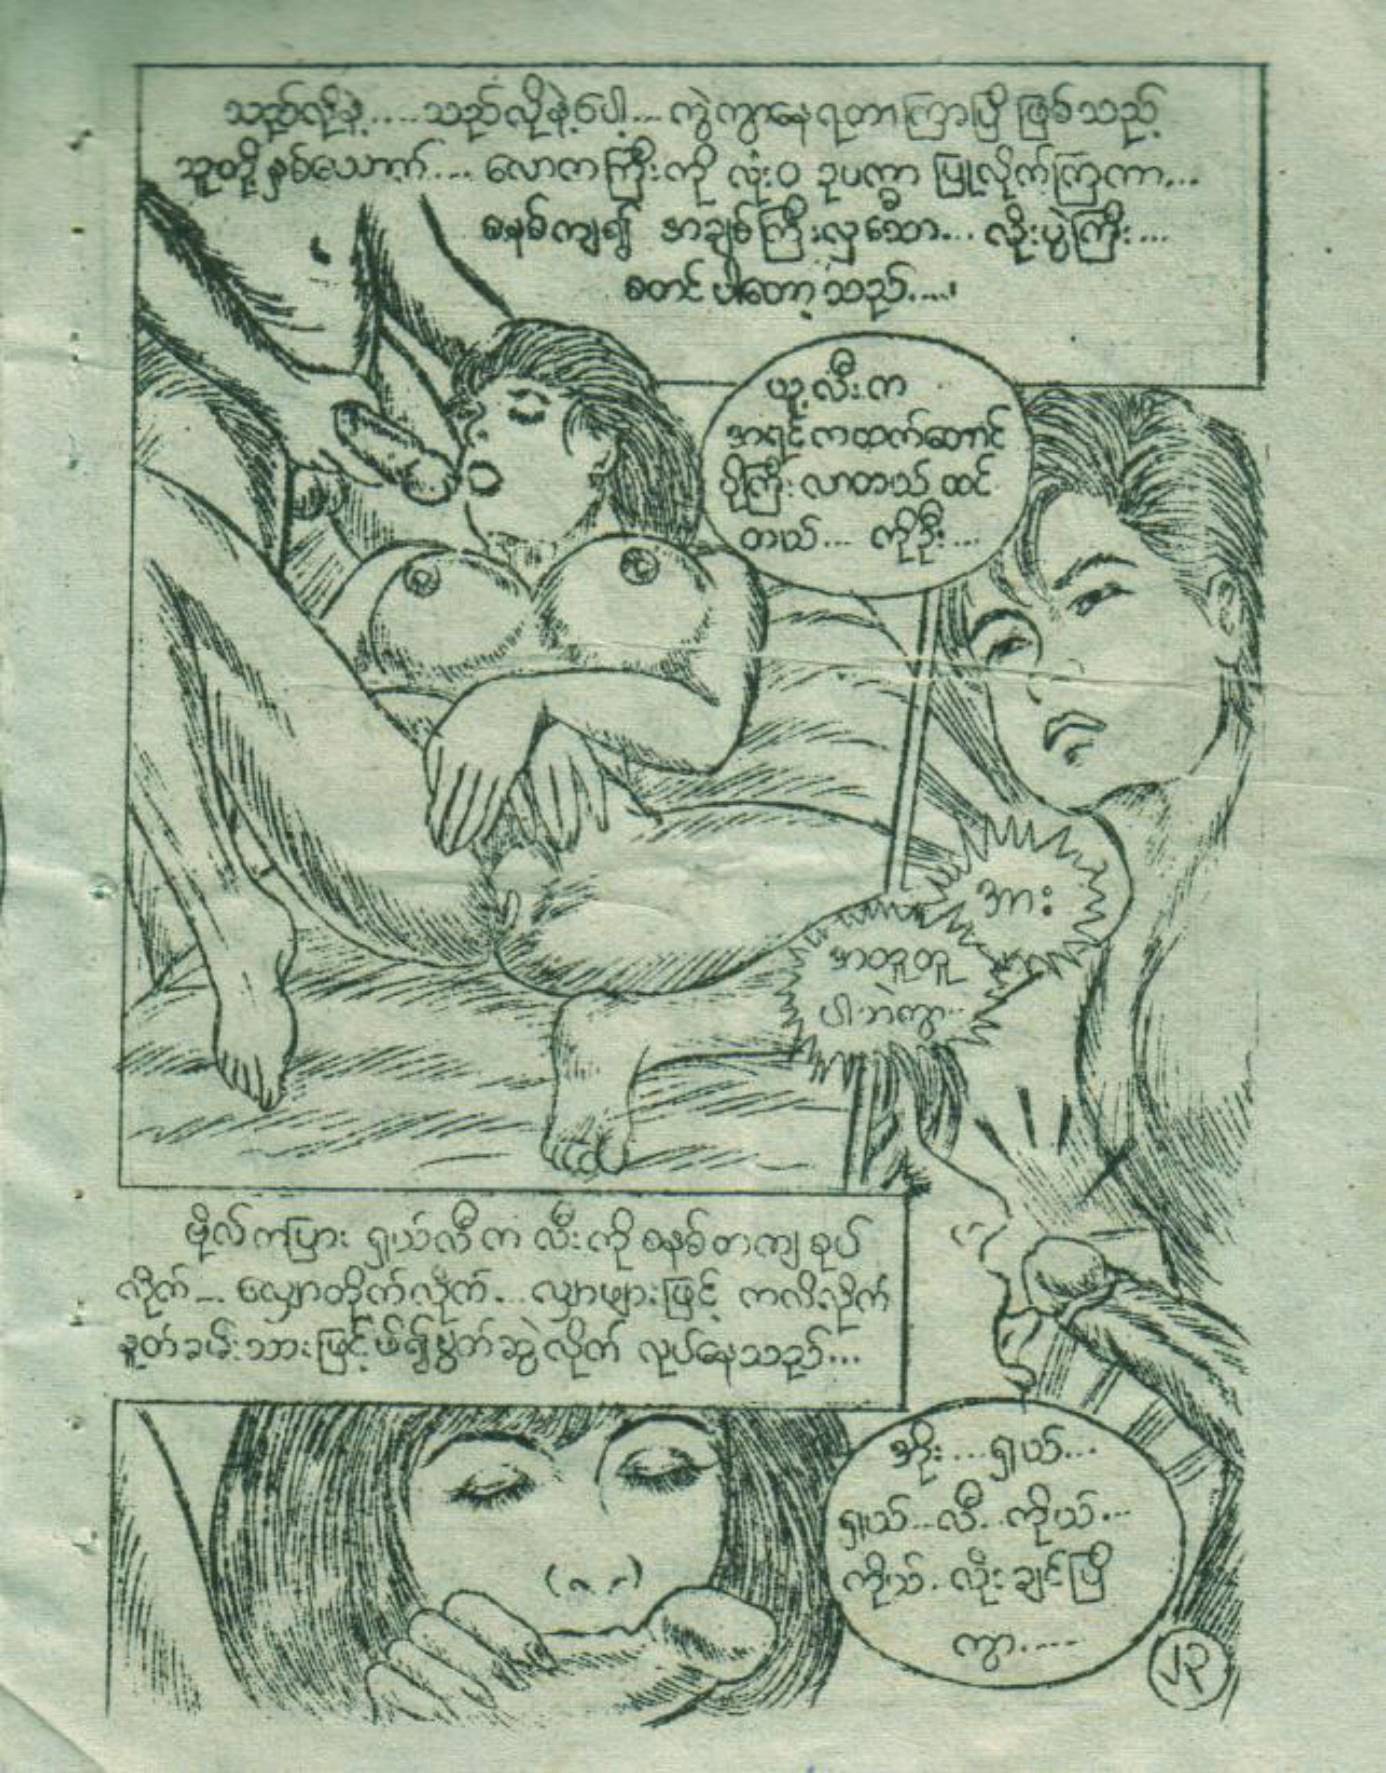 သည်လိုနဲ့.... သည်လိုနဲ့ပေါ့... ကွဲကွာနေရတာကြာပြီ ဖြစ်သည့်
သူတို့နှစ်ယောက်.... လောကကြီးကို လုံးဝ ဥပက္ခာ ပြုလိုက်ကြကာ...
စနစ်ကျ၍ အချစ်ကြီးလှသော... လိုးပွဲကြီး...
စတင်ပါတော့သည်....။
ယူ့လီးက
အရင်ကထက်တောင်
ပိုကြီးလာတယ် ထင်
တယ်... ကိုဦး...
အား
အတူတူ
ပါဘဲကွာ..
ဗိုလ်ကပြား ရှယ်လီက လီးကို စနစ်တကျ စုပ်
လိုက်... လျှောတိုက်လိုက်... လျှာဖျားဖြင့် ကလိလိုက်
နှုတ်ခမ်းသားဖြင့်ဖိ၍ပွတ်ဆွဲလိုက် လုပ်နေသည်...
အိုး....ရှယ်...
ရှယ်...လီ.. ကိုယ်...
ကိုယ်. လိုးချင်ပြီ
ကွာ.....
၂၃